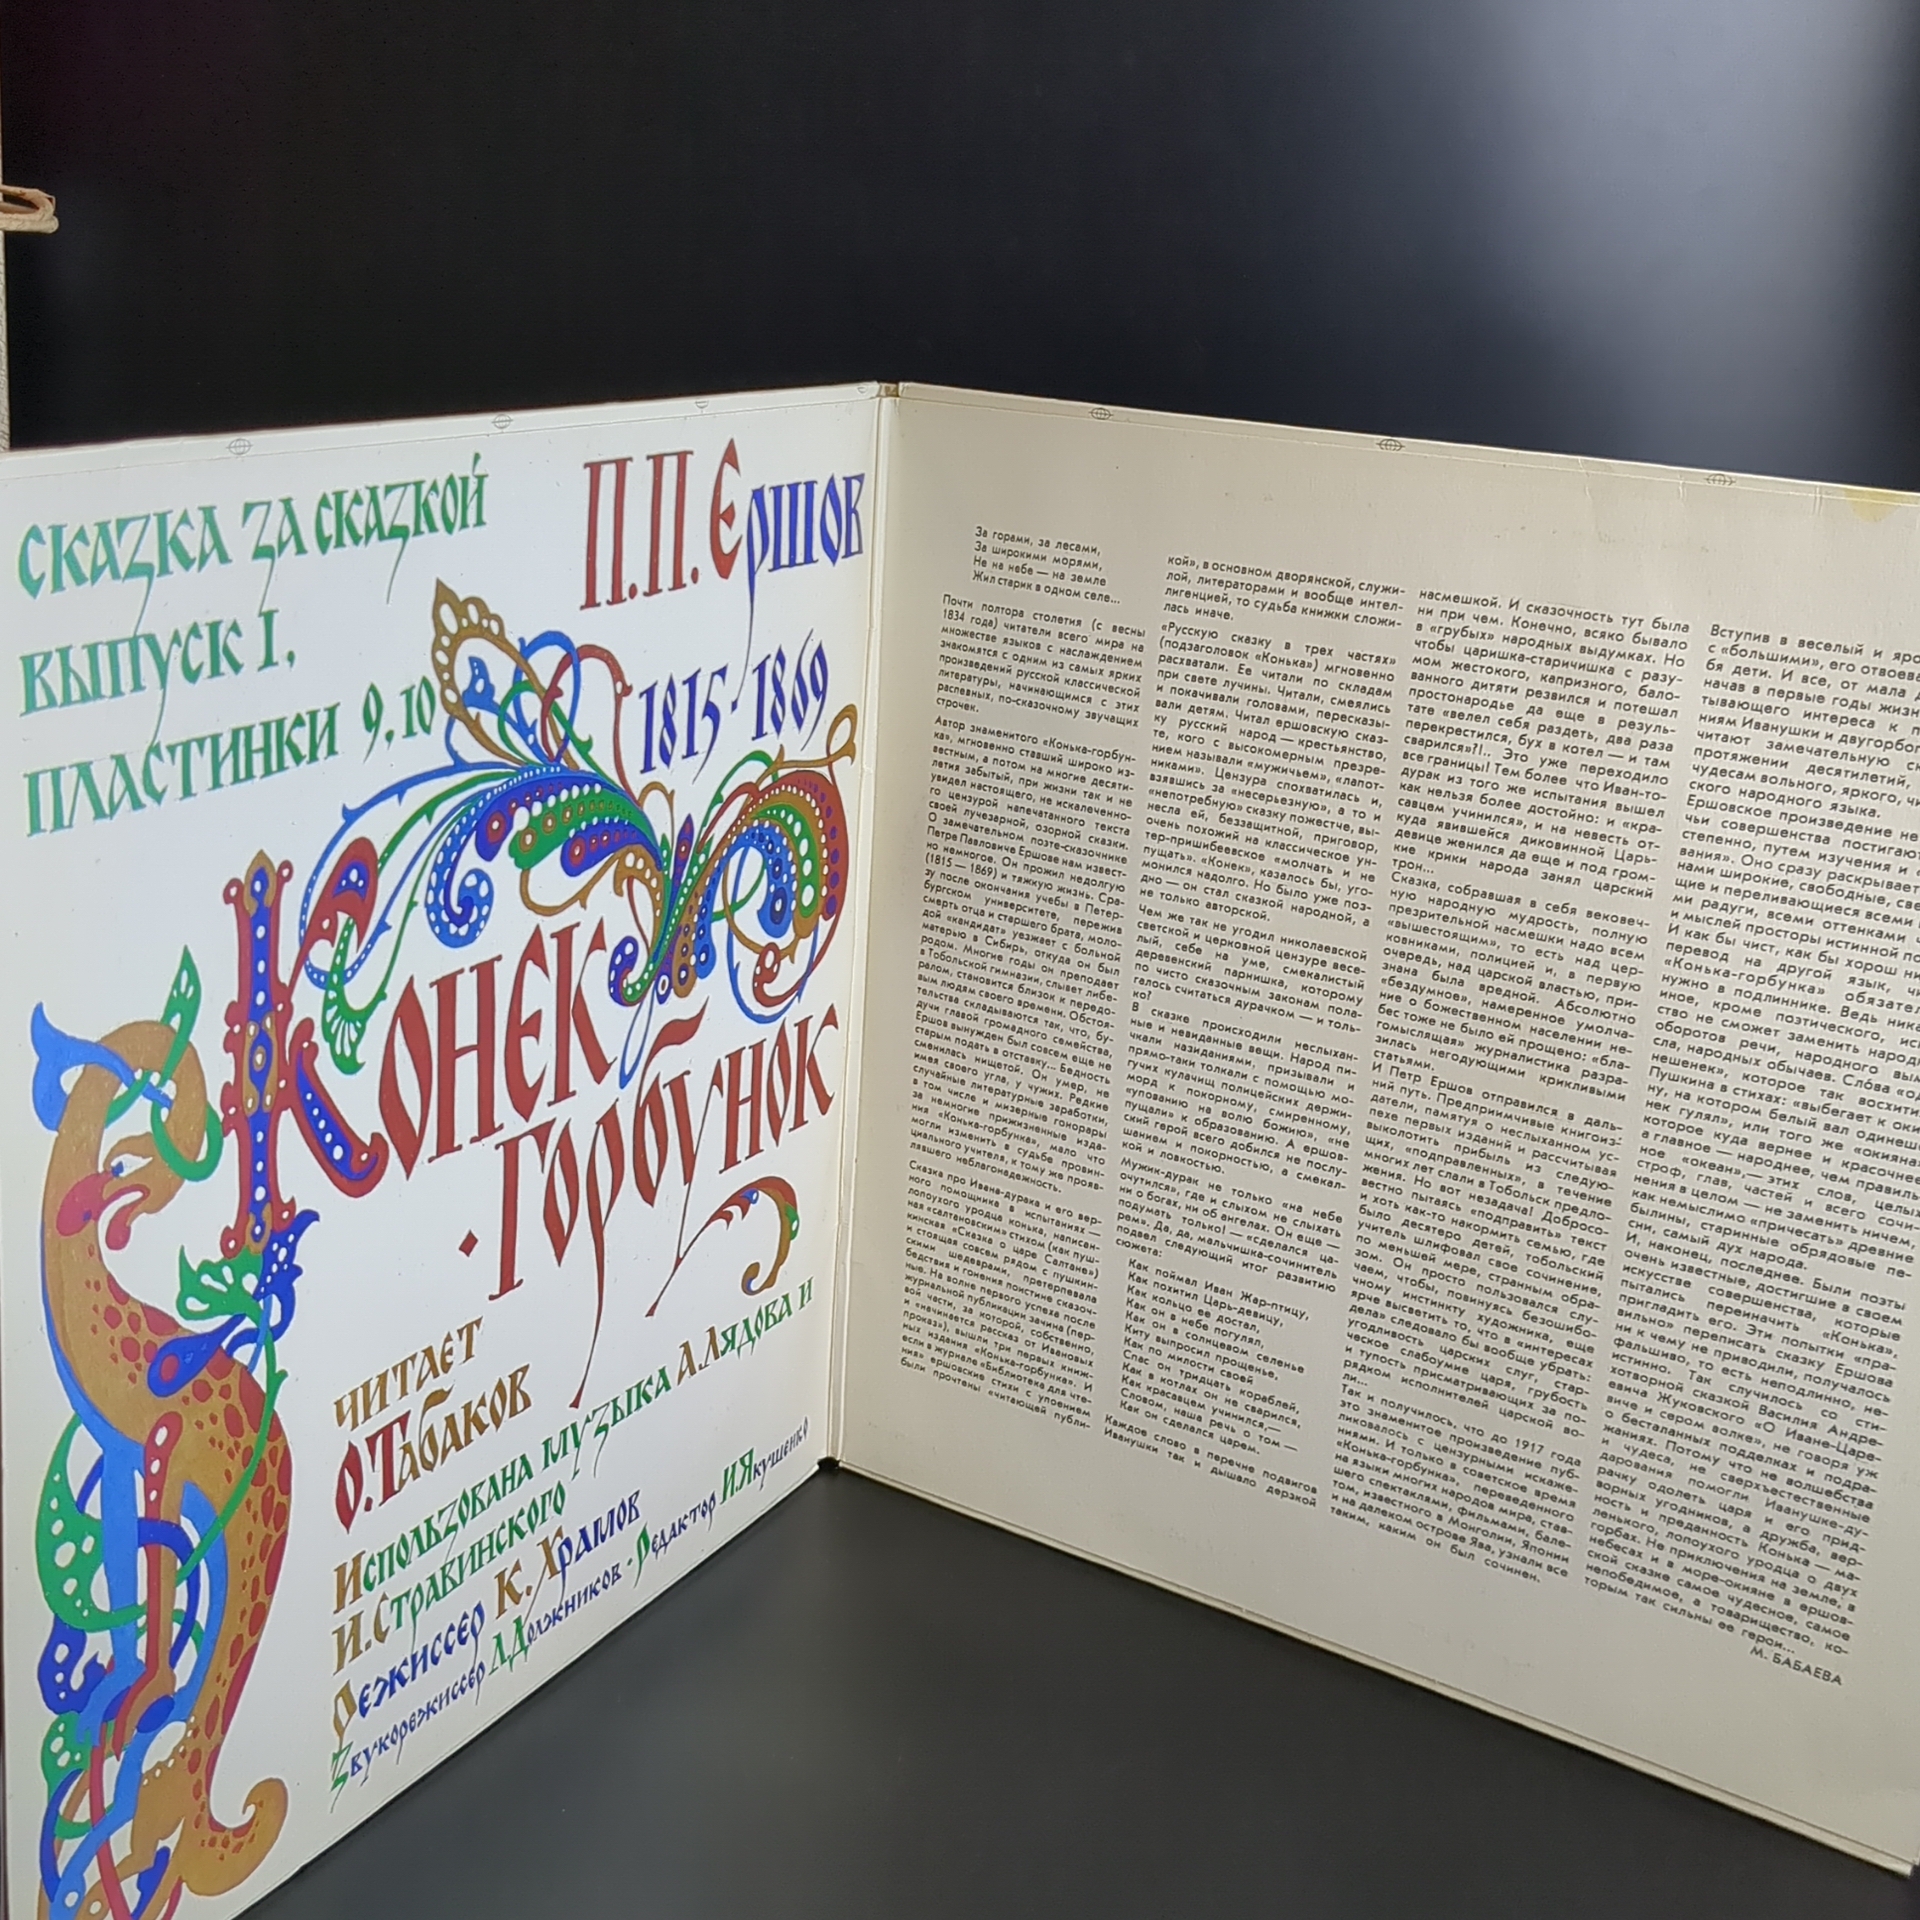 СКАЗКА ЗА СКАЗКОЙ
ВЫПУСК I.
ПЛАСТИНКИ 9,10
П.П. ЕРШОВ
1815-1869
КОНЕК
·ГОРБУНОК
ЧИТАЕТ
О.ТАБАКОВ
ИСПОЛЬЗОВАНА МУЗЫКА А.ЛЯДОВА И
И.СТРАВИНСКОГО
РЕЖИССЕР К. ХРАМОВ
ЗВУКОРЕЖИССЕР Л.ДОЛЖНИКОВ · РЕДАКТОР И.ЯКУШЕНКО
За горами, за лесами,
За широкими морями,
Не на небе — на земле
Жил старик в одном селе...
Почти полтора столетия (с весны
1834 года) читатели всего мира на
множестве языков с наслаждением
знакомятся с одним из самых ярких
произведений русской классической
литературы, начинающимся с этих
распевных, по-сказочному звучащих
строчек.
Автор знаменитого «Конька-горбун-
ка», мгновенно ставший широко из-
вестным, а потом на многие десяти-
летия забытый, при жизни так и не
увидел настоящего, не искалеченно-
го цензурой напечатанного текста
своей лучезарной, озорной сказки.
О замечательном поэте-сказочнике
Петре Павловиче Ершове нам извест-
но немногое. Он прожил недолгую
(1815 — 1869) и тяжкую жизнь. Сра-
зу после окончания учебы в Петер-
бургском университете, пережив
смерть отца и старшего брата, моло-
дой «кандидат» уезжает с больной
матерью в Сибирь, откуда он был
родом. Многие годы он преподает
в Тобольской гимназии, слывет либе-
ралом, становится близок к передо-
вым людям своего времени. Обстоя-
тельства складываются так, что, бу-
дучи главой громадного семейства,
Ершов вынужден был совсем еще не
старым подать в отставку... Бедность
сменилась нищетой. Он умер, не
имея своего угла, у чужих. Редкие
случайные литературные заработки,
в том числе и мизерные гонорары
за немногие прижизненные изда-
ния «Конька-горбунка», мало что
могли изменить в судьбе провин-
циального учителя, к тому же прояв-
лявшего неблагонадежность.
Сказка про Ивана-дурака и его вер-
ного помощника в испытаниях —
лопоухого уродца конька, написан-
ная «салтановским» стихом (как пуш-
кинская «Сказка о царе Салтане»)
и стоящая совсем рядом с пушкин-
скими шедеврами, претерпевала
бедствия и гонения поистине сказоч-
ные. На волне первого успеха после
журнальной публикации зачина (пер-
вой части, за которой, собственно,
и «начинается рассказ от Ивановых
проказ»), вышли три первых книж-
ных издания «Конька-горбунка». И
если в журнале «Библиотека для чте-
ния» ершовские стихи с упоением
были прочтены «читающей публи-
кой», в основном дворянской, служи-
лой, литераторами и вообще интел-
лигенцией, то судьба книжки сложи-
лась иначе.
«Русскую сказку в трех частях»
(подзаголовок «Конька») мгновенно
расхватали. Ее читали по складам
при свете лучины. Читали, смеялись
и покачивали головами, пересказы-
вали детям. Читал ершовскую сказ-
ку русский народ — крестьянство,
те, кого с высокомерным презре-
нием называли «мужичьем», «лапот-
никами». Цензура спохватилась и,
взявшись за «несерьезную», а то и
«непотребную» сказку пожестче, вы-
несла ей, беззащитной, приговор,
очень похожий на классическое ун-
тер-пришибеевское «молчать и не
пущать». «Конек», казалось бы, уго-
монился надолго. Но было уже поз-
дно — он стал сказкой народной, а
не только авторской.
Чем же так не угодил николаевской
светской и церковной цензуре весе-
лый, себе на уме, смекалистый
деревенский парнишка, которому
по чисто сказочным законам пола-
галось считаться дурачком — и толь-
ко?
В сказке происходили неслыхан-
ные и невиданные вещи. Народ пи-
чкали назиданиями, призывали и
прямо-таки толкали с помощью мо-
гучих кулачищ полицейских держи-
морд к покорному, смиренному,
«упованию на волю божию», «не
пущали» к образованию. А ершов-
ский герой всего добился не послу-
шанием и покорностью, а смекал-
кой и ловкостью.
Мужик-дурак не только «на небе
очутился», где и слыхом не слыхать
ни о богах, ни об ангелах. Он еще —
подумать только! — «сделался ца-
рем». Да, да, мальчишка-сочинитель
подвел следующий итог развитию
сюжета:
Как поймал Иван Жар-птицу,
Как похитил Царь-девицу,
Как кольцо ее достал,
Как он в небе погулял,
Как он в солнцевом селенье
Киту выпросил прощенье,
Как по милости своей
Спас он тридцать кораблей,
Как в котлах он не сварился,
Как красавцем учинился,—
Словом, наша речь о том —
Как он сделался царем.
Каждое слово в перечне подвигов
Иванушки так и дышало дерзкой
насмешкой. И сказочность тут была
ни при чем. Конечно, всяко бывало
в «грубых» народных выдумках. Но
чтобы царишка-старичишка с разу-
мом жестокого, капризного, бало-
ванного дитяти резвился и потешал
простонародье да еще в резуль-
тате «велел себя раздеть, два раза
перекрестился, бух в котел — и там
сварился»?!.. Это уже переходило
все границы! Тем более что Иван-то-
дурак из того же испытания вышел
как нельзя более достойно: и «кра-
савцем учинился», и на невесть от-
куда явившейся диковинной Царь-
девице женился да еще и под гром-
кие крики народа занял царский
трон...
Сказка, собравшая в себя вековеч-
ную народную мудрость, полную
презрительной насмешки надо всем
«вышестоящим», то есть над цер-
ковниками, полицией и, в первую
очередь, над царской властью, при-
знана была вредной. Абсолютно
«бездумное», намеренное умолча-
ние о божественном населении не-
бес тоже не было ей прощено: «бла-
гомыслящая» журналистика разра-
зилась негодующими крикливыми
статьями.
И Петр Ершов отправился в даль-
ний путь. Предприимчивые книгоиз-
датели, памятуя о неслыханном ус-
пехе первых изданий и рассчитывая
выколотить прибыль из следую-
щих, «подправленных», в течение
многих лет слали в Тобольск предло-
жения. Но вот незадача! Добросо-
вестно пытаясь «подправить» текст
и хоть как-то накормить семью, где
было десятеро детей, тобольский
учитель шлифовал свое сочинение,
по меньшей мере, странным обра-
зом. Он просто пользовался слу-
чаем, чтобы, повинуясь безошибо-
чному инстинкту художника, еще
ярче высветить то, что в «интересах
дела» следовало бы вообще убрать:
угодливость царских слуг, стар-
ческое слабоумие царя, грубость
и тупость присматривающих за по-
рядком исполнителей царской во-
ли...
Так и получилось, что до 1917 года
это знаменитое произведение пуб-
ликовалось с цензурными искаже-
ниями. И только в советское время
«Конька-горбунка», переведенного
на языки многих народов мира, став-
шего спектаклями, фильмами, бале-
том, известного в Монголии, Японии
и на далеком острове Ява, узнали все
таким, каким он был сочинен.
Вступив в веселый и
с «большими», его отвоева
бя дети. И все, от мала
начав в первые годы жизн
тывающего интереса к п
ниям Иванушки и двугорбог
читают замечательную
протяжении десятилетий,
чудесам вольного, яркого,
ского народного языка.
Ершовское произведение не
чьи совершенства постигают
степенно, путем изучения и
вания». Оно сразу раскрывает
нами широкие, свободные,
щие и переливающиеся всеми
ми радуги, всеми оттенками
и мыслей просторы истинной
И как бы чист, как бы хорош ни
перевод на другой язык,
«Конька-горбунка» обязател
нужно в подлиннике. Ведь ника
иное, кроме поэтического,
ство не сможет заменить народн
оборотов речи, народного
сла, народных обычаев. Сло́ва «од
нешенек», которое так восхити
Пушкина в стихах: «выбегает к оки
ну, на котором белый вал одинеше
нек гулял», или того же «окияна»
которое куда вернее и красочнее
а главное — народнее, чем правиль-
ное «океан»,— этих слов, целых
строф, глав, частей и всего сочи-
нения в целом — не заменить ничем,
как немыслимо «причесать» древние
былины, старинные обрядовые пе-
сни, самый дух народа.
И, наконец, последнее. Были поэты
очень известные, достигшие в своем
искусстве совершенства, которые
пытались переиначить «Конька»,
пригладить его. Эти попытки «пра-
вильно» переписать сказку Ершова
ни к чему не приводили, получалось
фальшиво, то есть неподлинно, не-
истинно. Так случилось со сти-
хотворной сказкой Василия Андре-
евича Жуковского «О Иване-Царе-
виче и сером волке», не говоря уж
о бесталанных подделках и подра-
жаниях. Потому что не волшебства
и чудеса, не сверхъестественные
дарования помогли Иванушке-ду-
рачку одолеть царя и его прид-
ворных угодников, а дружба, вер-
ность и преданность Конька — ма-
ленького, лопоухого уродца о двух
горбах. Не приключения на земле, в
небесах и в море-окияне в ершов-
ской сказке самое чудесное, самое
непобедимое, а товарищество, ко-
торым так сильны ее герои...
М. БАБАЕВА